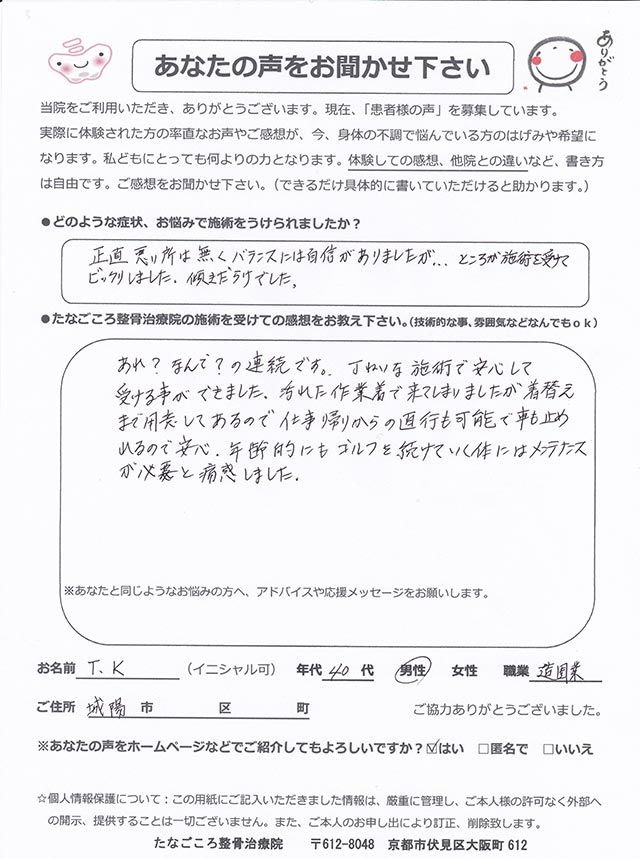 あなたの声をお聞かせ下さい
ありがとう
当院をご利用いただき、ありがとうございます。現在、「患者様の声」を募集しています。
実際に体験された方の率直なお声やご感想が、今、身体の不調で悩んでいる方のはげみや希望に
なります。私どもにとっても何よりの力となります。体験しての感想、他院との違いなど、書き方
は自由です。ご感想をお聞かせ下さい。（できるだけ具体的に書いていただけると助かります。）
●どのような症状、お悩みで施術をうけられましたか？
正直 悪い所は無くバランスには自信がありましたが... ところが施術を受けて
ビックリしました. 傾きだらけでした.
●たなごころ整骨治療院の施術を受けての感想をお教え下さい。（技術的な事、雰囲気などなんでもｏｋ）
あれ？なんで？の連続です。. 丁ねいな施術で安心して
受ける事ができました. 汚れた作業着で来てしまいましたが着替え
まで用意してあるので仕事帰りからの直行も可能で車も止め
れるので安心. 年齢的にもゴルフを続けていく体にはメンテナンス
が必要と痛感しました.
※あなたと同じようなお悩みの方へ、アドバイスや応援メッセージをお願いします。
お名前 T.K （イニシャル可） 年代 40 代 男性 女性 職業 造園業
ご住所 城陽 市 区 町 ご協力ありがとうございました。
※あなたの声をホームページなどでご紹介してもよろしいですか？☑はい □匿名で □いいえ
☆個人情報保護について：この用紙にご記入いただきました情報は、厳重に管理し、ご本人様の許可なく外部へ
の開示、提供することは一切ございません。また、ご本人のお申し出により訂正、削除致します。
たなごころ整骨治療院 〒612-8048 京都市伏見区大阪町 612